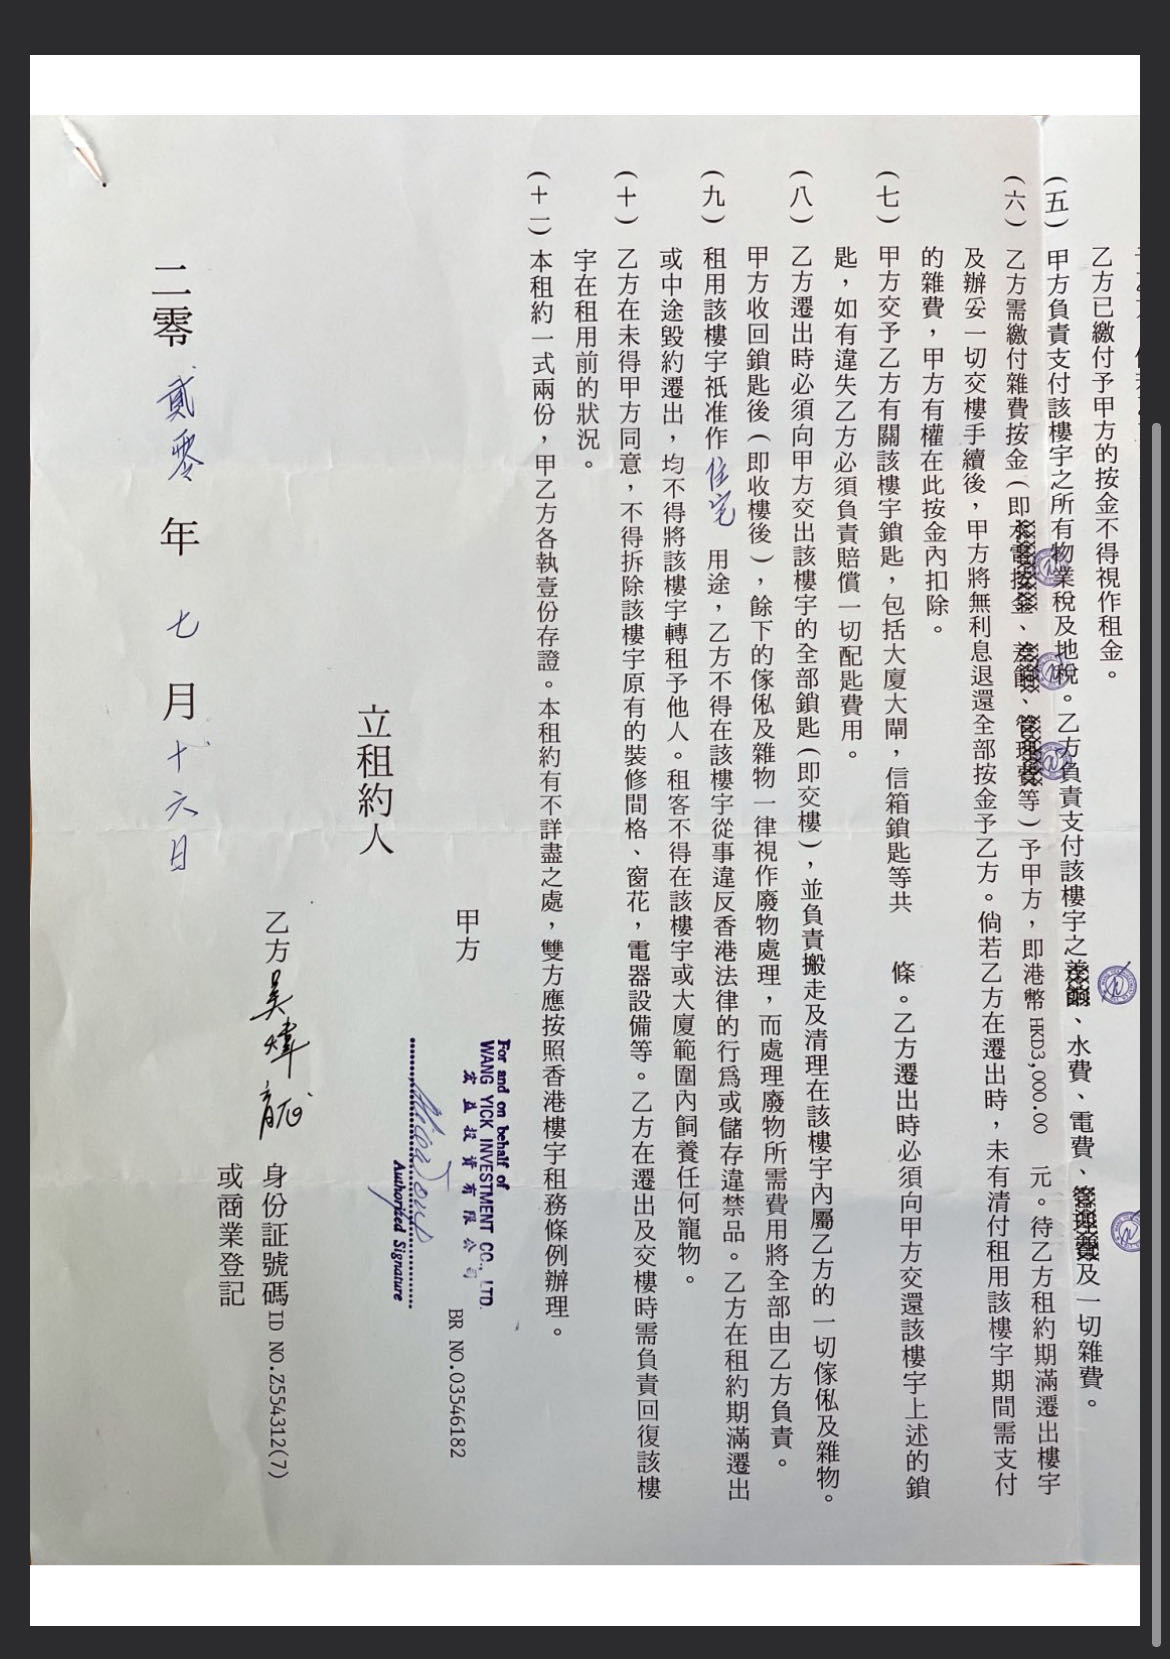 乙方已繳付予甲方的按金不得視作租金。
(五) 甲方負責支付該樓宇之所有物業稅及地稅。乙方負責支付該樓宇之差餉、水費、電費、管理費及一切雜費。
(六) 乙方需繳付雜費按金(即水電按金、差餉、管理費等)予甲方,即港幣HKD3,000.00 元。待乙方租約期滿遷出樓宇
及辦妥一切交樓手續後,甲方將無利息退還全部按金予乙方。倘若乙方在遷出時,未有清付租用該樓宇期間需支付
的雜費,甲方有權在此按金內扣除。
(七) 甲方交予乙方有關該樓宇鎖匙,包括大廈大閘,信箱鎖匙等共 條。乙方遷出時必須向甲方交還該樓宇上述的鎖
匙,如有違失乙方必須負責賠償一切配匙費用。
(八) 乙方遷出時必須向甲方交出該樓宇的全部鎖匙(即交樓),並負責搬走及清理在該樓宇內屬乙方的一切傢俬及雜物。
甲方收回鎖匙後(即收樓後),餘下的傢俬及雜物一律視作廢物處理,而處理廢物所需費用將全部由乙方負責。
(九) 租用該樓宇祇准作 住宅 用途,乙方不得在該樓宇從事違反香港法律的行為或儲存違禁品。乙方在租約期滿遷出
或中途毀約遷出,均不得將該樓宇轉租予他人。租客不得在該樓宇或大廈範圍內飼養任何寵物。
(十) 乙方在未得甲方同意,不得拆除該樓宇原有的裝修間格、窗花,電器設備等。乙方在遷出及交樓時需負責回復該樓
宇在租用前的狀況。
(十一) 本租約一式兩份,甲乙方各執壹份存證。本租約有不詳盡之處,雙方應按照香港樓宇租務條例辦理。
For and on behalf of
WANG YICK INVESTMENT CO., LTD.
宏益投資有限公司
Authorized Signature
甲方
BR NO.03546182
立租約人
乙方 吳煒龍
身份証號碼 ID NO.Z554312(7)
或商業登記
二零貳零年七月十六日